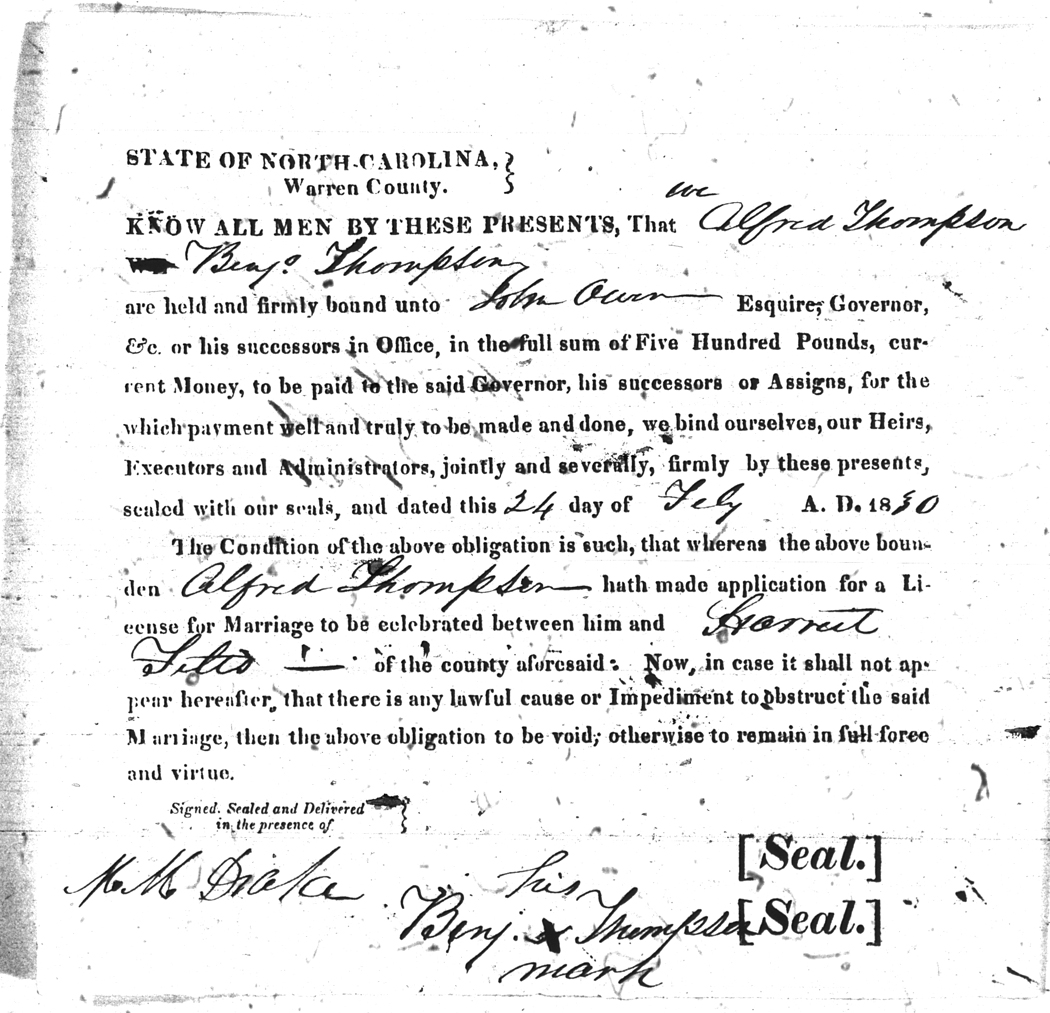 STATE OF NORTH-CAROLINA,
Warren County.
we
KNOW ALL MEN BY THESE PRESENTS, That Alfred Thompson
Benjⁿ Thompson
are held and firmly bound unto John Owen Esquire, Governor,
&c. or his successors in Office, in the full sum of Five Hundred Pounds, cur-
rent Money, to be paid to the said Governor, his successors or Assigns, for the
which payment well and truly to be made and done, we bind ourselves, our Heirs,
Executors and Administrators, jointly and severally, firmly by these presents,
sealed with our seals, and dated this 24 day of Feby A. D. 1830
The Condition of the above obligation is such, that whereas the above boun-
den Alfred Thompson hath made application for a Li-
cense for Marriage to be celebrated between him and Harriet
of the county aforesaid: Now, in case it shall not ap-
pear hereafter, that there is any lawful cause or Impediment to obstruct the said
Marriage, then the above obligation to be void; otherwise to remain in full force
and virtue.
Signed, Sealed and Delivered
in the presence of
[Seal.]
M. M Drake his
Benj. x Thompson [Seal.]
mark